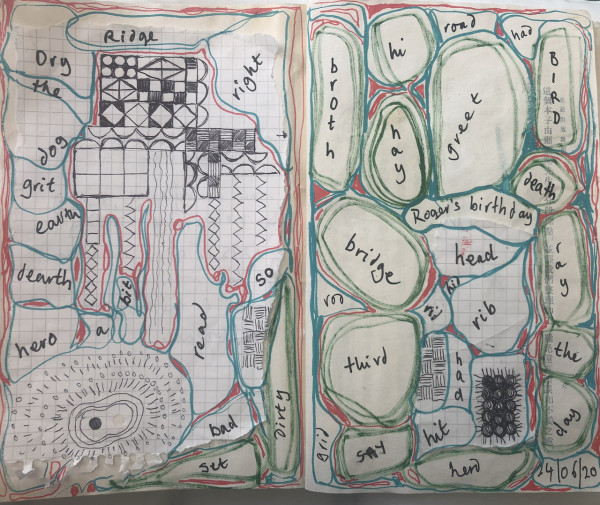 Ridge
Dry
the
right
dog
grit
earth
dearth
so
bit
a
hero
read
bad
Dirty
set
hi
road
had
broth
BIRD
hay
greet
death
Roger's birthday
bridge
head
ray
hid
rid
rib
third
had
the
grid
say
hit
day
herd